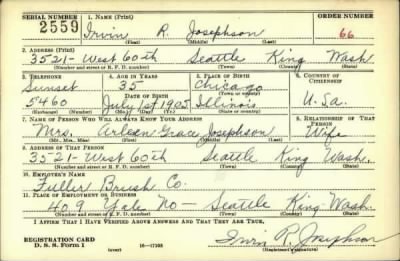 SERIAL NUMBER 1. NAME (Print) ORDER NUMBER
2559 Irvin R. Josephson 66
(First) (Middle) (Last)
2. ADDRESS (Print)
3521- West 60th Seattle King Wash.
(Number and street or R. F. D. number) (Town) (County) (State)
3. TELEPHONE 4. AGE IN YEARS 5. PLACE OF BIRTH 6. COUNTRY OF CITIZENSHIP
Sunset 35 Chicago
DATE OF BIRTH (Town or county)
5460 July 1st 1905 Illinois U.S.a.
(Exchange) (Number) (Mo.) (Day) (Yr.) (State or country)
7. NAME OF PERSON WHO WILL ALWAYS KNOW YOUR ADDRESS 8. RELATIONSHIP OF THAT PERSON
Mrs. Arleen Grace Josephson Wife
(Mr., Mrs., Miss) (First) (Middle) (Last)
9. ADDRESS OF THAT PERSON
3521- West 60th Seattle King Wash.
(Number and street or R. F. D. number) (Town) (County) (State)
10. EMPLOYER'S NAME
Fuller Brush Co.
11. PLACE OF EMPLOYMENT OR BUSINESS
409 Yale No— Seattle King Wash
(Number and street or R. F. D. number) (Town) (County) (State)
I AFFIRM THAT I HAVE VERIFIED ABOVE ANSWERS AND THAT THEY ARE TRUE.
REGISTRATION CARD
D. S. S. FORM 1 (over) 16—17105 Irvin R. Josephson